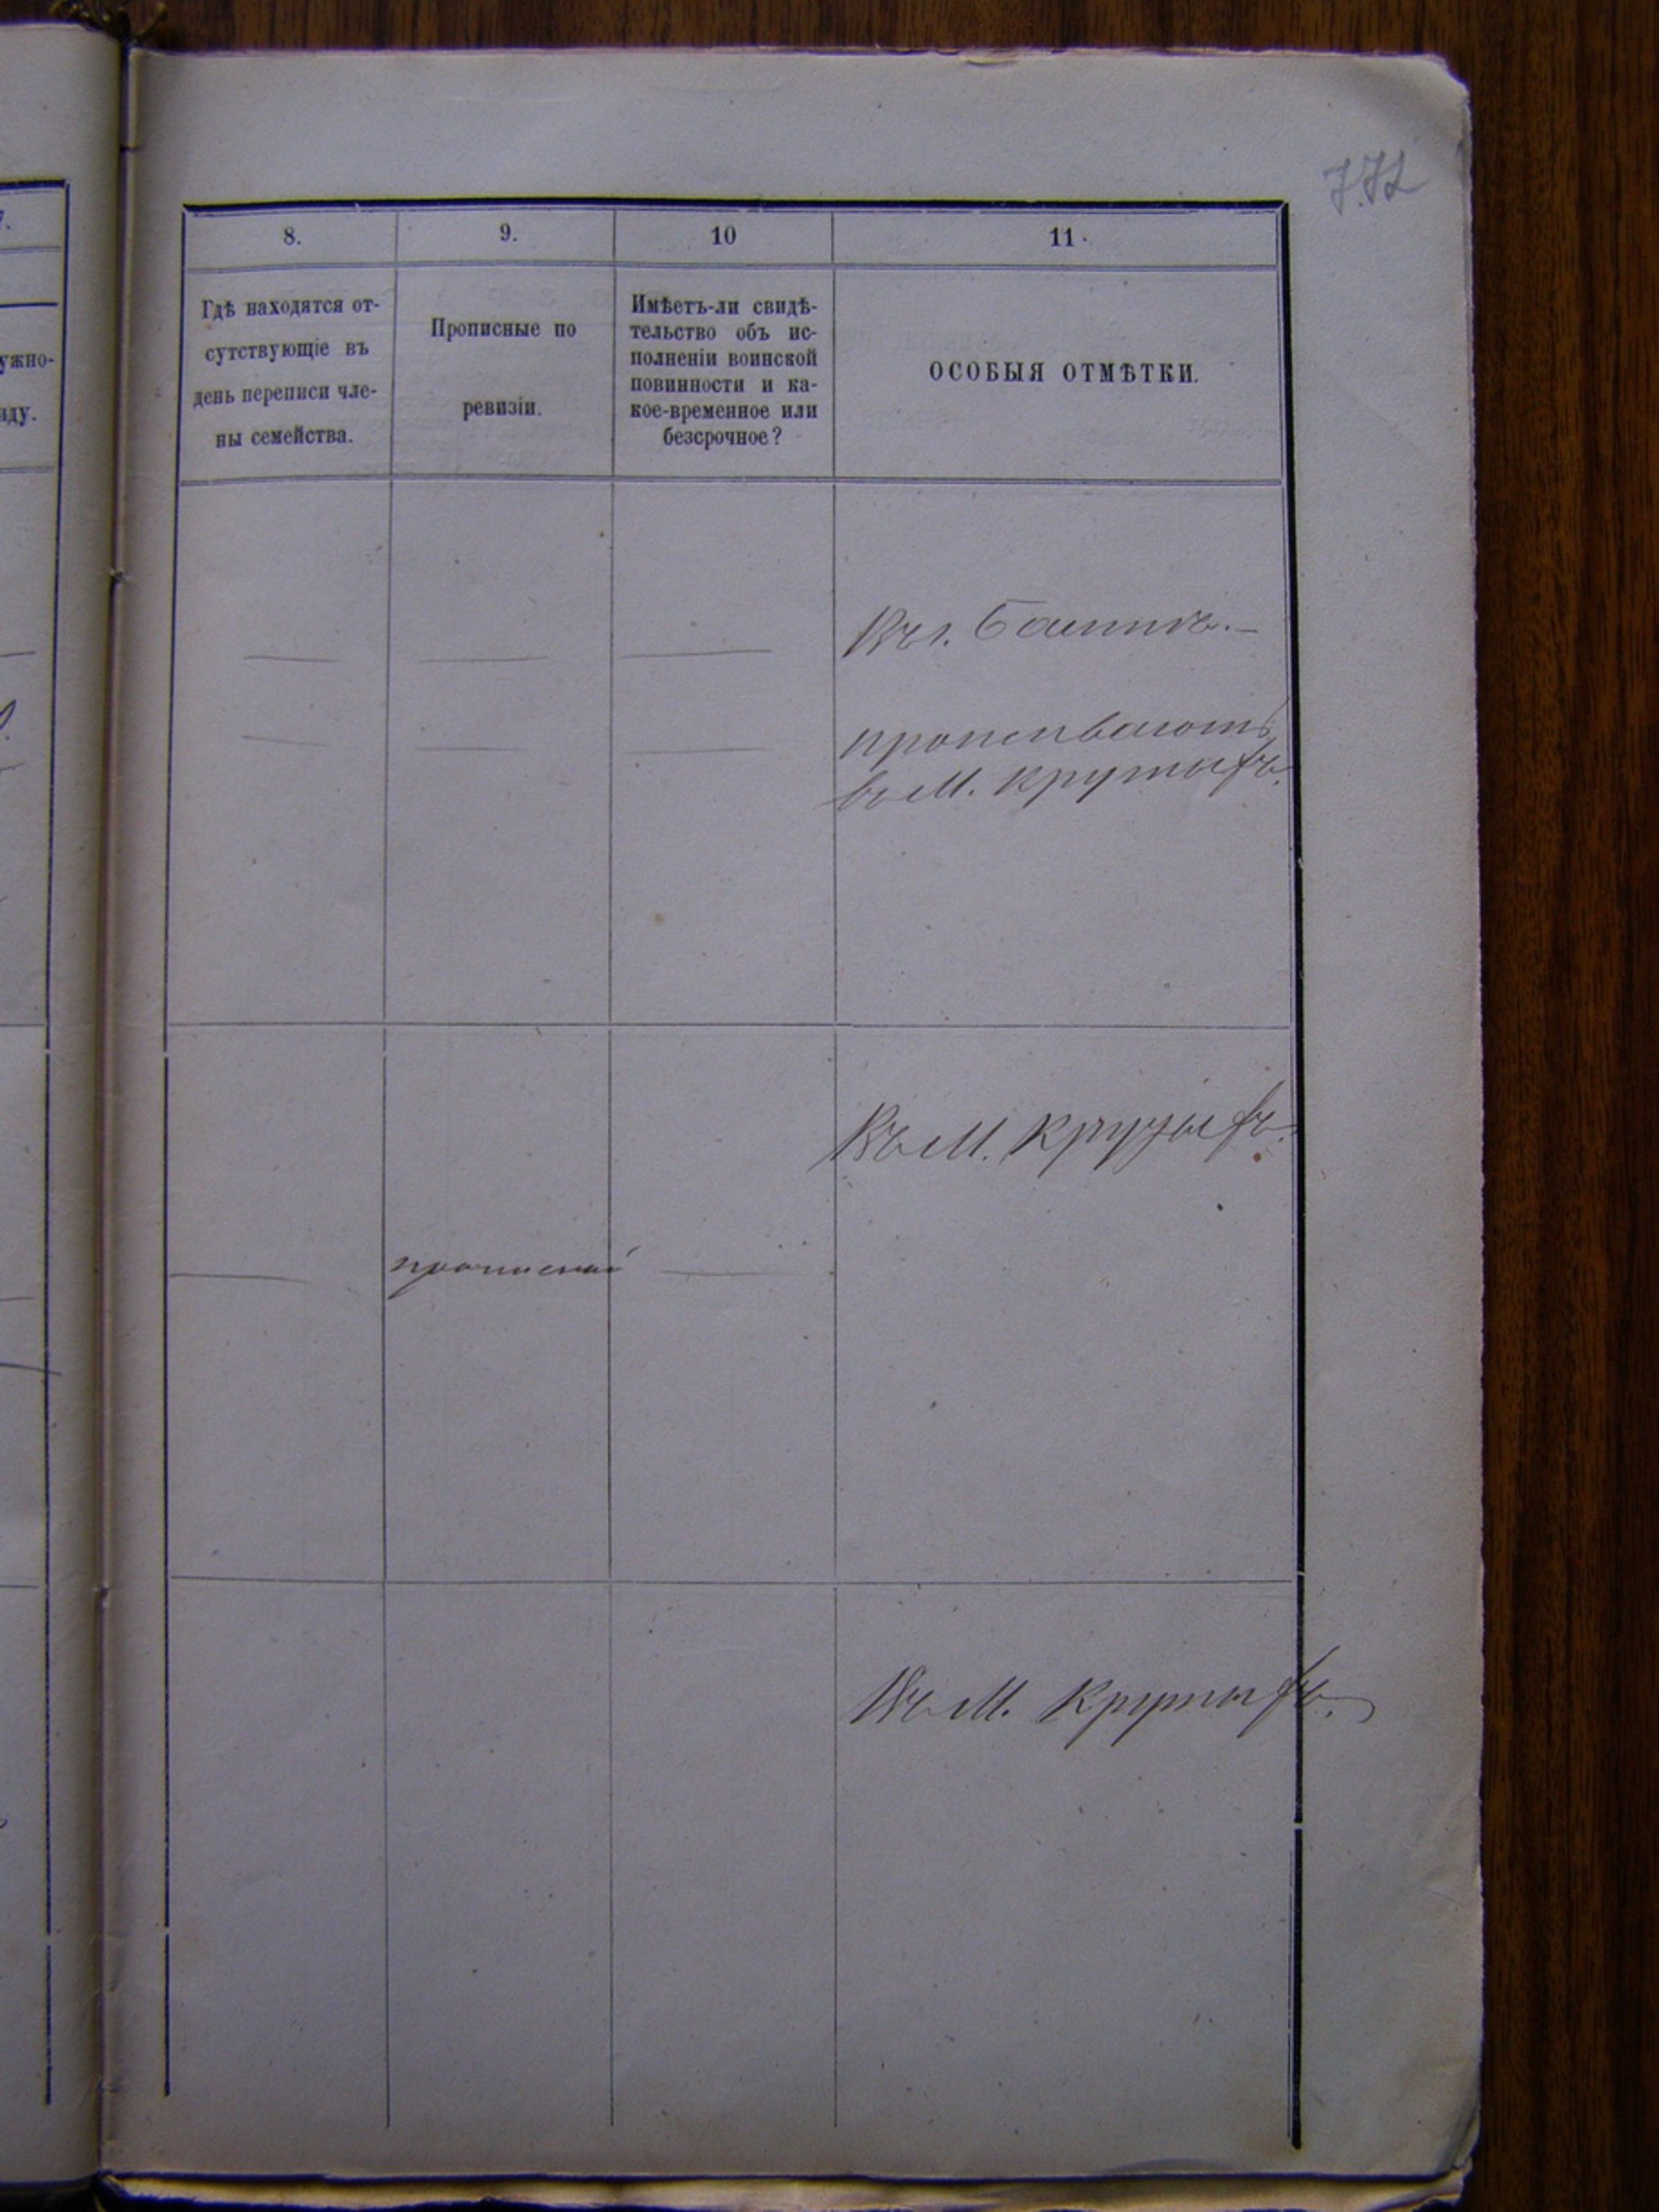 772
8.
9.
10
11.
Гдѣ находятся от-
сутствующіе въ
день переписи чле-
ны семейства.
Прописные по
ревизіи.
Имѣетъ-ли свидѣ-
тельство объ ис-
полненіи воинской
повинности и ка-
кое-временное или
безсрочное?
ОСОБЫЯ ОТМѢТКИ.
ужно-
иду.
Въ г.
проживаютъ
въ М. Крутыхъ.
Въ М. Крутыхъ.
прописной
Въ М. Крутыхъ.